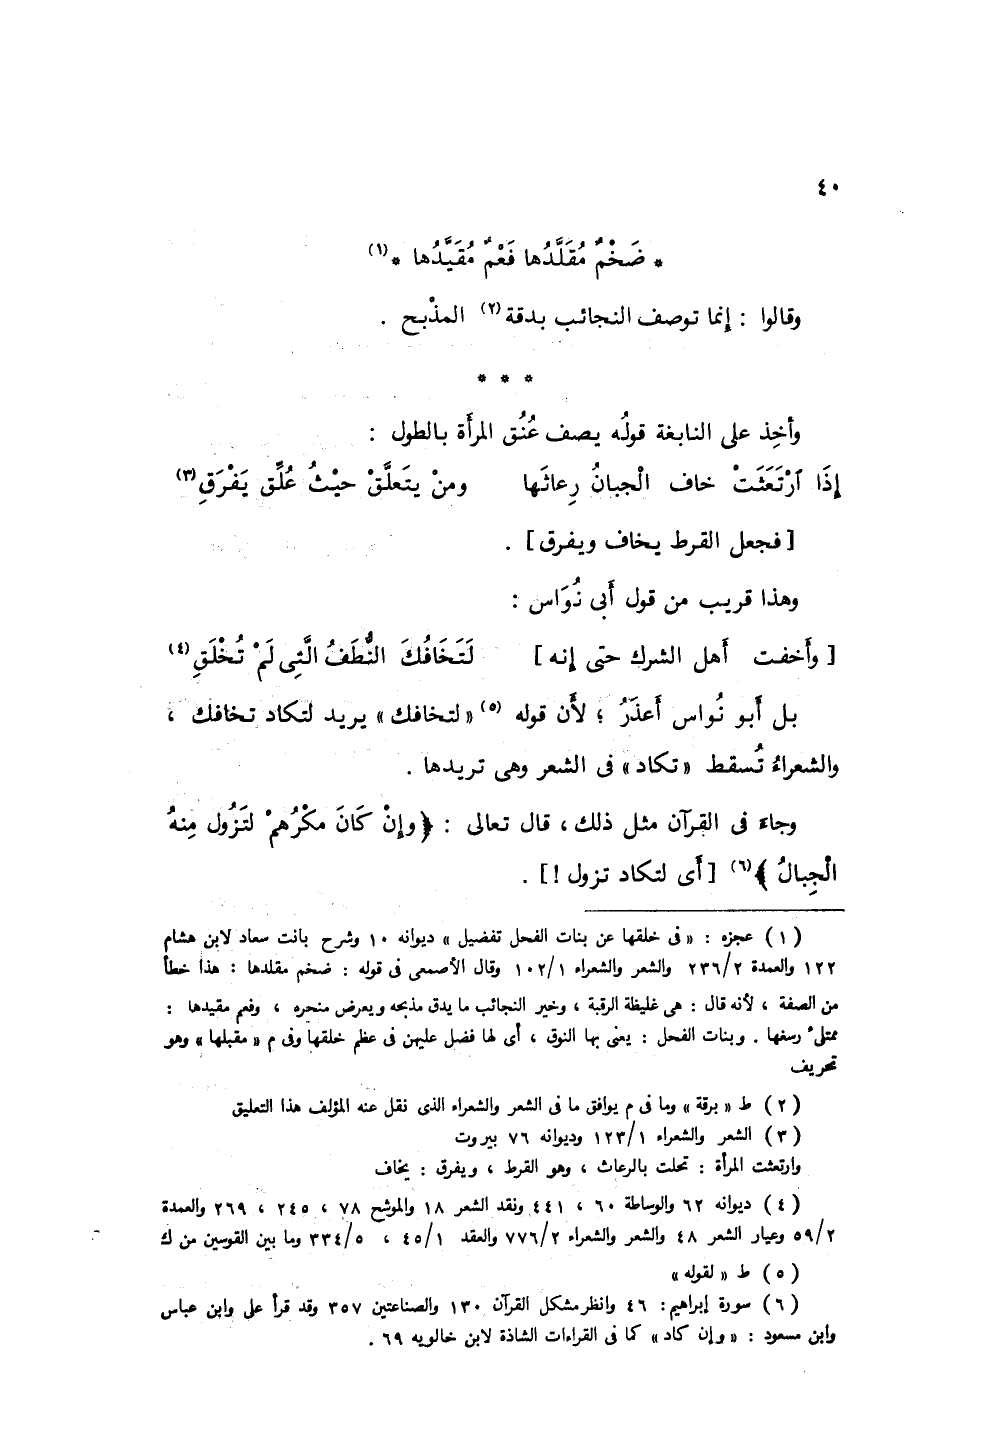 ٤٠
* ضَخْمٌ مُقَلَّدُها فَعْمٌ مُقَيَّدُها * (١)
وقالوا : إنما توصف النجائب بدقة (٢) المذْبح .
* * *
وأخِذ على النابغة قولُه يصف عُنُق المرأَة بالطول :
إِذَا ٱرْتَعَثَتْ خاف الْجبانُ رِعاثَها ومنْ يتَعلَّقْ حيْثُ عُلِّق يَفْرَقِ (٣)
[ فجعل القرط يخاف ويفرق ] .
وهذا قريب من قول أَبى نُوَاس :
[ وأَخفت أَهل الشرك حتى إنه ] لَتَخَافُكَ النُّطَفُ الَّتِى لَمْ تُخْلَقِ (٤)
بل أَبو نُواس أَعذَرُ ؛ لأَن قوله (٥) « لتخافك » يريد لتكاد تخافك ،
والشعراءُ تُسقط « تكاد » فى الشعر وهى تريدها .
وجاءَ فى القرآن مثل ذلك ، قال تعالى : ﴿ وإِنْ كَانَ مكْرُهمْ لتَزُول مِنهُ
الْجِبالُ ﴾ (٦) [ أَى لتكاد تزول ! ] .
( ١ ) عجزه : « فى خلقها عن بنات الفحل تفضيل » ديوانه ١٠ وشرح بانت سعاد لابن هشام
١٢٢ والعمدة ٢٣٦/٢ والشعر والشعراء ١٠٢/١ وقال الأصمعى فى قوله : ضخم مقلدها : هذا خطأ
من الصفة ، لأنه قال : هى غليظة الرقبة ، وخير النجائب ما يدق مذبحه ويعرض منحره ، وفعم مقيدها :
ممتلىء رسغها . وبنات الفحل : يعنى بها النوق ، أى لها فضل عليهن فى عظم خلقها وفى م « مقبلها » وهو
تحريف
( ٢ ) ط « برقة » وما فى م يوافق ما فى الشعر والشعراء الذى نقل عنه المؤلف هذا التعليق
( ٣ ) الشعر والشعراء ١٢٣/١ وديوانه ٧٦ بيروت
وارتعثت المرأة : تحلت بالرعاث ، وهو القرط ، ويفرق : يخاف
( ٤ ) ديوانه ٦٢ والوساطة ٦٠ ، ٤٤١ ونقد الشعر ١٨ والموشح ٧٨ ، ٢٤٥ ، ٢٦٩ والعمدة
٥٩/٢ وعيار الشعر ٤٨ والشعر والشعراء ٧٧٦/٢ والعقد ٤٥/١ ، ٣٣٤/٥ وما بين القوسين من ك
( ٥ ) ط « لقوله »
( ٦ ) سورة إبراهيم : ٤٦ وانظر مشكل القرآن ١٣٠ والصناعتين ٣٥٧ وقد قرأ على وابن عباس
وابن مسعود : « وإن كاد » كما فى القراءات الشاذة لابن خالويه ٦٩ .